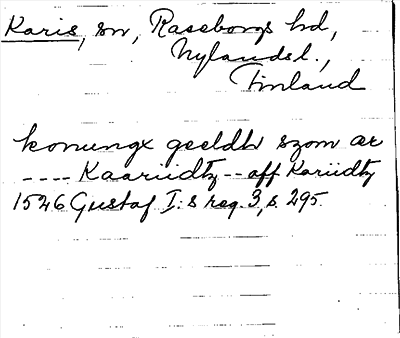 Karis, sn, Raseborgs hd,
Nylands l.,
Finland
konungx geeldh szom ær
---- Kaariidtz -- aff Kariidtz
1526 Gustaf I:s reg. 3, s. 295.